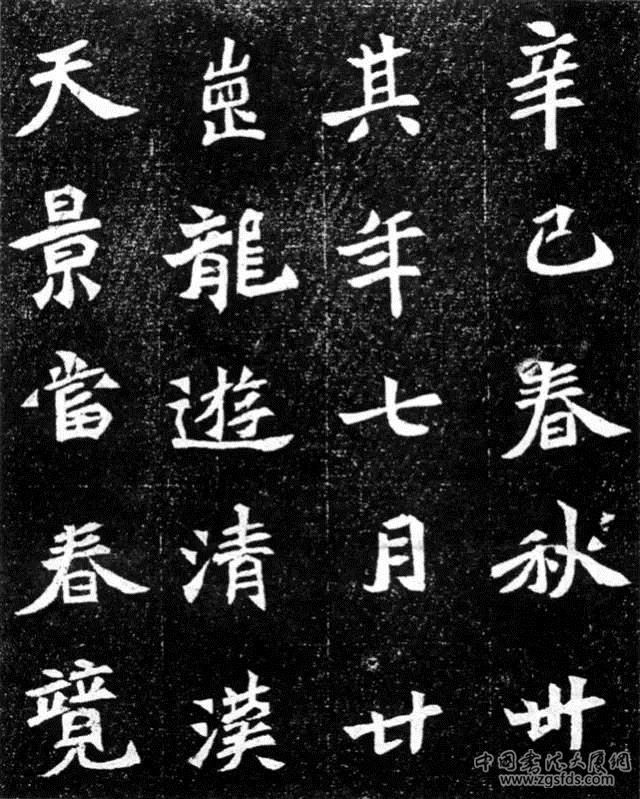 辛巳春秋卌
其年七月廿
龍遊清漢
天景當春竟
中國書法大展網
www.zgsfds.com